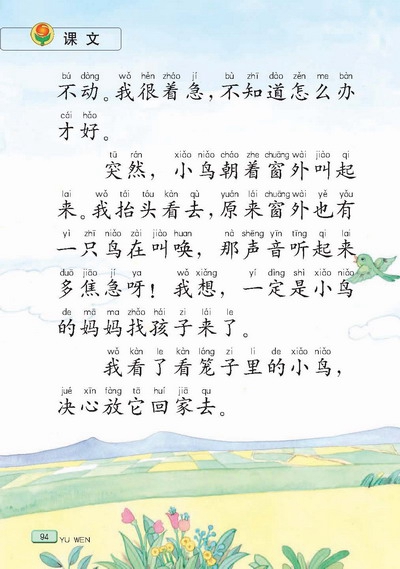 课文
bú dòng wǒ hěn zháo jí bù zhī dào zěn me bàn
不动。我很着急，不知道怎么办
cái hǎo
才好。
tū rán xiǎo niǎo cháo zhe chuāng wài jiào qi
突然，小鸟朝着窗外叫起
lai wǒ tái tóu kàn qù yuán lái chuāng wài yě yǒu
来。我抬头看去，原来窗外也有
yì zhī niǎo zài jiào huan nà shēng yīn tīng qi lai
一只鸟在叫唤，那声音听起来
duō jiāo jí ya wǒ xiǎng yí dìng shì xiǎo niǎo
多焦急呀！我想，一定是小鸟
de mā ma zhǎo hái zi lái le
的妈妈找孩子来了。
wǒ kàn le kàn lóng zi li de xiǎo niǎo
我看了看笼子里的小鸟，
jué xīn fàng tā huí jiā qu
决心放它回家去。
94 YU WEN